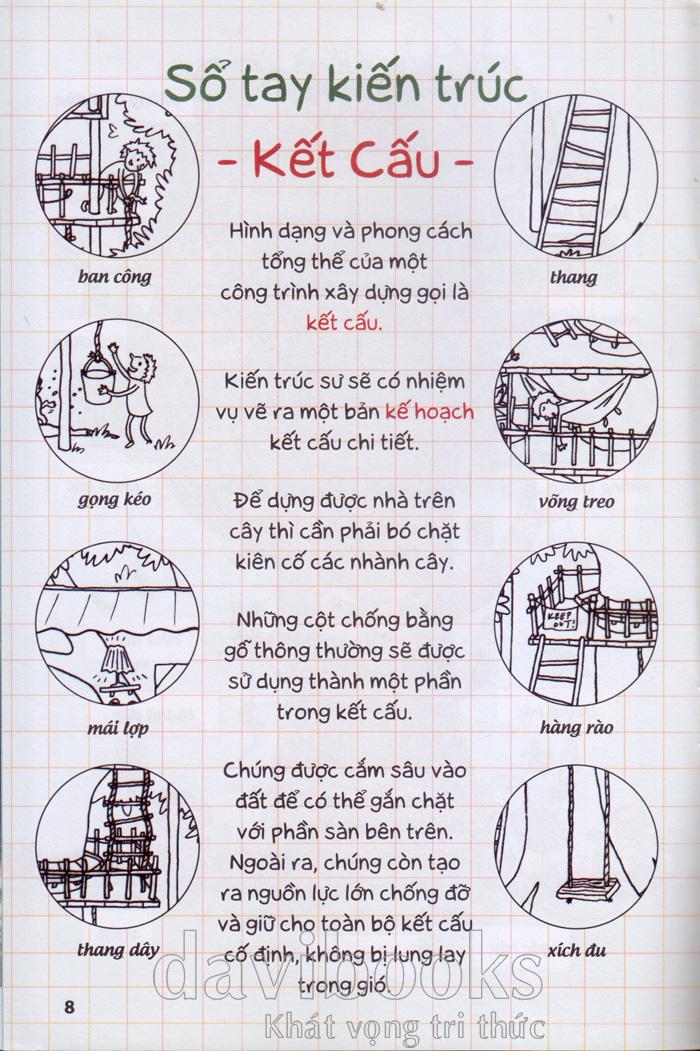 Sổ tay kiến trúc
- Kết Cấu -
ban công
gọng kéo
mái lợp
thang dây
Hình dạng và phong cách
tổng thể của một
công trình xây dựng gọi là
kết cấu.
Kiến trúc sư sẽ có nhiệm
vụ vẽ ra một bản kế hoạch
kết cấu chi tiết.
Để dựng được nhà trên
cây thì cần phải bó chặt
kiên cố các nhành cây.
Những cột chống bằng
gỗ thông thường sẽ được
sử dụng thành một phần
trong kết cấu.
Chúng được cắm sâu vào
đất để có thể gắn chặt
với phần sàn bên trên.
Ngoài ra, chúng còn tạo
ra nguồn lực lớn chống đỡ
và giữ cho toàn bộ kết cấu
cố định, không bị lung lay
trong gió.
thang
võng treo
KEEP
OUT!
hàng rào
xích đu
davibooks
Khát vọng tri thức
8